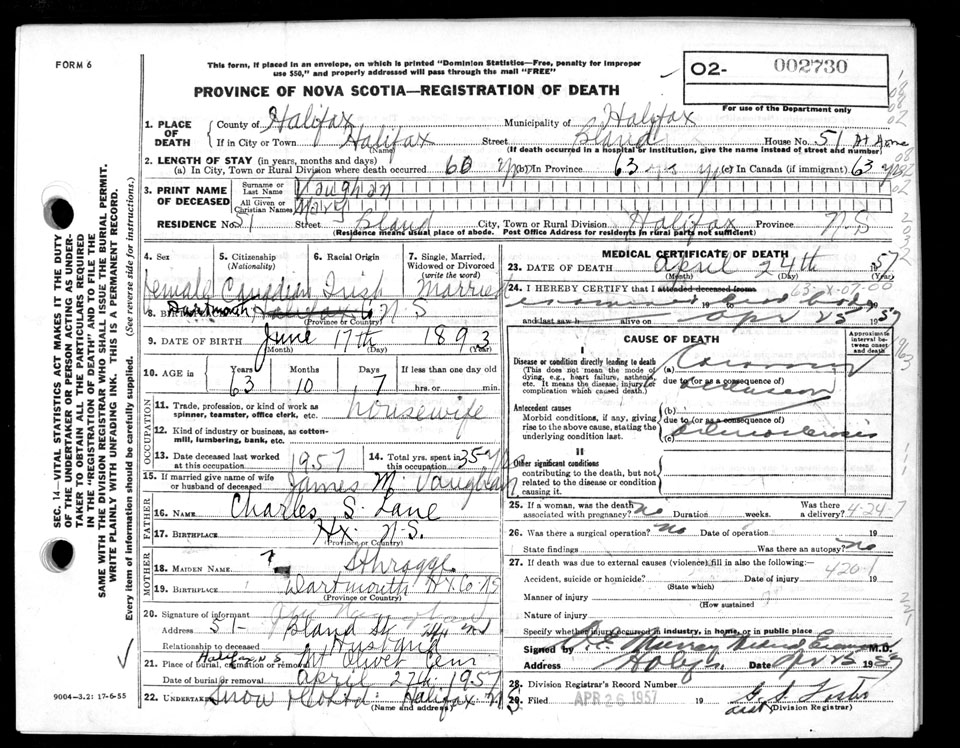 FORM 6
This form, if placed in an envelope, on which is printed "Dominion Statistics—Free, penalty for improper
use $50," and properly addressed will pass through the mail "FREE"
O2- 002730
PROVINCE OF NOVA SCOTIA—REGISTRATION OF DEATH
For use of the Department only
1. PLACE OF DEATH { County of Halifax Municipality of Halifax
If in City or Town Halifax Street Bland House No. 51 At Home
(Name) (If death occurred in a hospital or institution, give the name instead of street and number)
2. LENGTH OF STAY (in years, months and days)
(a) In City, Town or Rural Division where death occurred 60 yrs (b) In Province 63 yrs (c) In Canada (if immigrant) 63 yrs
3. PRINT NAME OF DECEASED { Surname or Last Name Vaughan
All Given or Christian Names Mary
RESIDENCE No. 51 Street Bland City, Town or Rural Division Halifax Province N-S
(Residence means usual place of abode. Post Office Address for residents in rural parts not sufficient)
4. Sex 5. Citizenship (Nationality) 6. Racial Origin 7. Single, Married, Widowed or Divorced (write the word)
Female Canadian Irish Married
8. Birthplace Dartmouth Halifax Co N-S
(Province or Country)
9. DATE OF BIRTH June 17th 1893
(Month) (Day) (Year)
10. AGE in { Years 63 Months 10 Days 7 If less than one day old
hrs. or min.
OCCUPATION
11. Trade, profession, or kind of work as spinner, teamster, office clerk, etc. housewife
12. Kind of industry or business, as cotton-mill, lumbering, bank, etc.
13. Date deceased last worked at this occupation 1957 14. Total yrs. spent in this occupation 35 yrs
15. If married give name of wife or husband of deceased James M. Vaughan
FATHER
16. NAME Charles S. Lane
17. BIRTHPLACE Hx. N.S.
(Province or Country)
MOTHER
18. MAIDEN NAME ?
19. BIRTHPLACE Dartmouth Hx Co NS
(Province or Country)
20. Signature of informant
Address 51- Bland St. Hfx NS
Relationship to deceased Husband
21. Place of burial, cremation or removal Halifax N.S Mt Olivet Cem
Date of burial or removal April 27th 1957
22. Undertaker Snow & Co Ltd. Halifax N.S
(Name and address)
MEDICAL CERTIFICATE OF DEATH
23. DATE OF DEATH April 24th 1957
(Month) (Day) (Year)
24. I HEREBY CERTIFY that I attended deceased from 63-X-07-00
examined dead body
19 to 19
and last saw h alive on Apr 25 1957
CAUSE OF DEATH
Approximate interval between onset and death
I
Disease or condition directly leading to death
(This does not mean the mode of dying, e.g., heart failure, asthenia, etc. It means the disease, injury or complication which caused death.)
(a) Coronary
due to (or as a consequence of)
occlusion
Antecedent causes
Morbid conditions, if any, giving rise to the above cause, stating the underlying condition last.
(b)
due to (or as a consequence of)
(c) Arteriosclerosis
II
Other significant conditions
contributing to the death, but not related to the disease or condition causing it.
25. If a woman, was the death associated with pregnancy? no Duration weeks. Was there a delivery? 4-24-7
26. Was there a surgical operation? no Date of operation 19
State findings Was there an autopsy? no
27. If death was due to external causes (violence) fill in also the following:-
420-1
Accident, suicide or homicide? Date of injury 19
(State which)
Manner of injury
(How sustained)
Nature of injury
Specify whether injury occurred in industry, in home, or in public place
Signed by Murray Medical Examiner M.D.
Address Halifax Date Apr 25 1957
28. Division Registrar's Record Number
29. Filed APR 26 1957 19 G. S. Foster
(Division Registrar)
SEC. 14—VITAL STATISTICS ACT MAKES IT THE DUTY
OF THE UNDERTAKER OR PERSON ACTING AS UNDER-
TAKER TO OBTAIN ALL THE PARTICULARS REQUIRED
IN THE "REGISTRATION OF DEATH" AND TO FILE THE
SAME WITH THE DIVISION REGISTRAR WHO SHALL ISSUE THE BURIAL PERMIT.
WRITE PLAINLY WITH UNFADING INK. THIS IS A PERMANENT RECORD.
Every item of information should be carefully supplied. (See reverse side for instructions.)
9004-3.2: 17-6-55